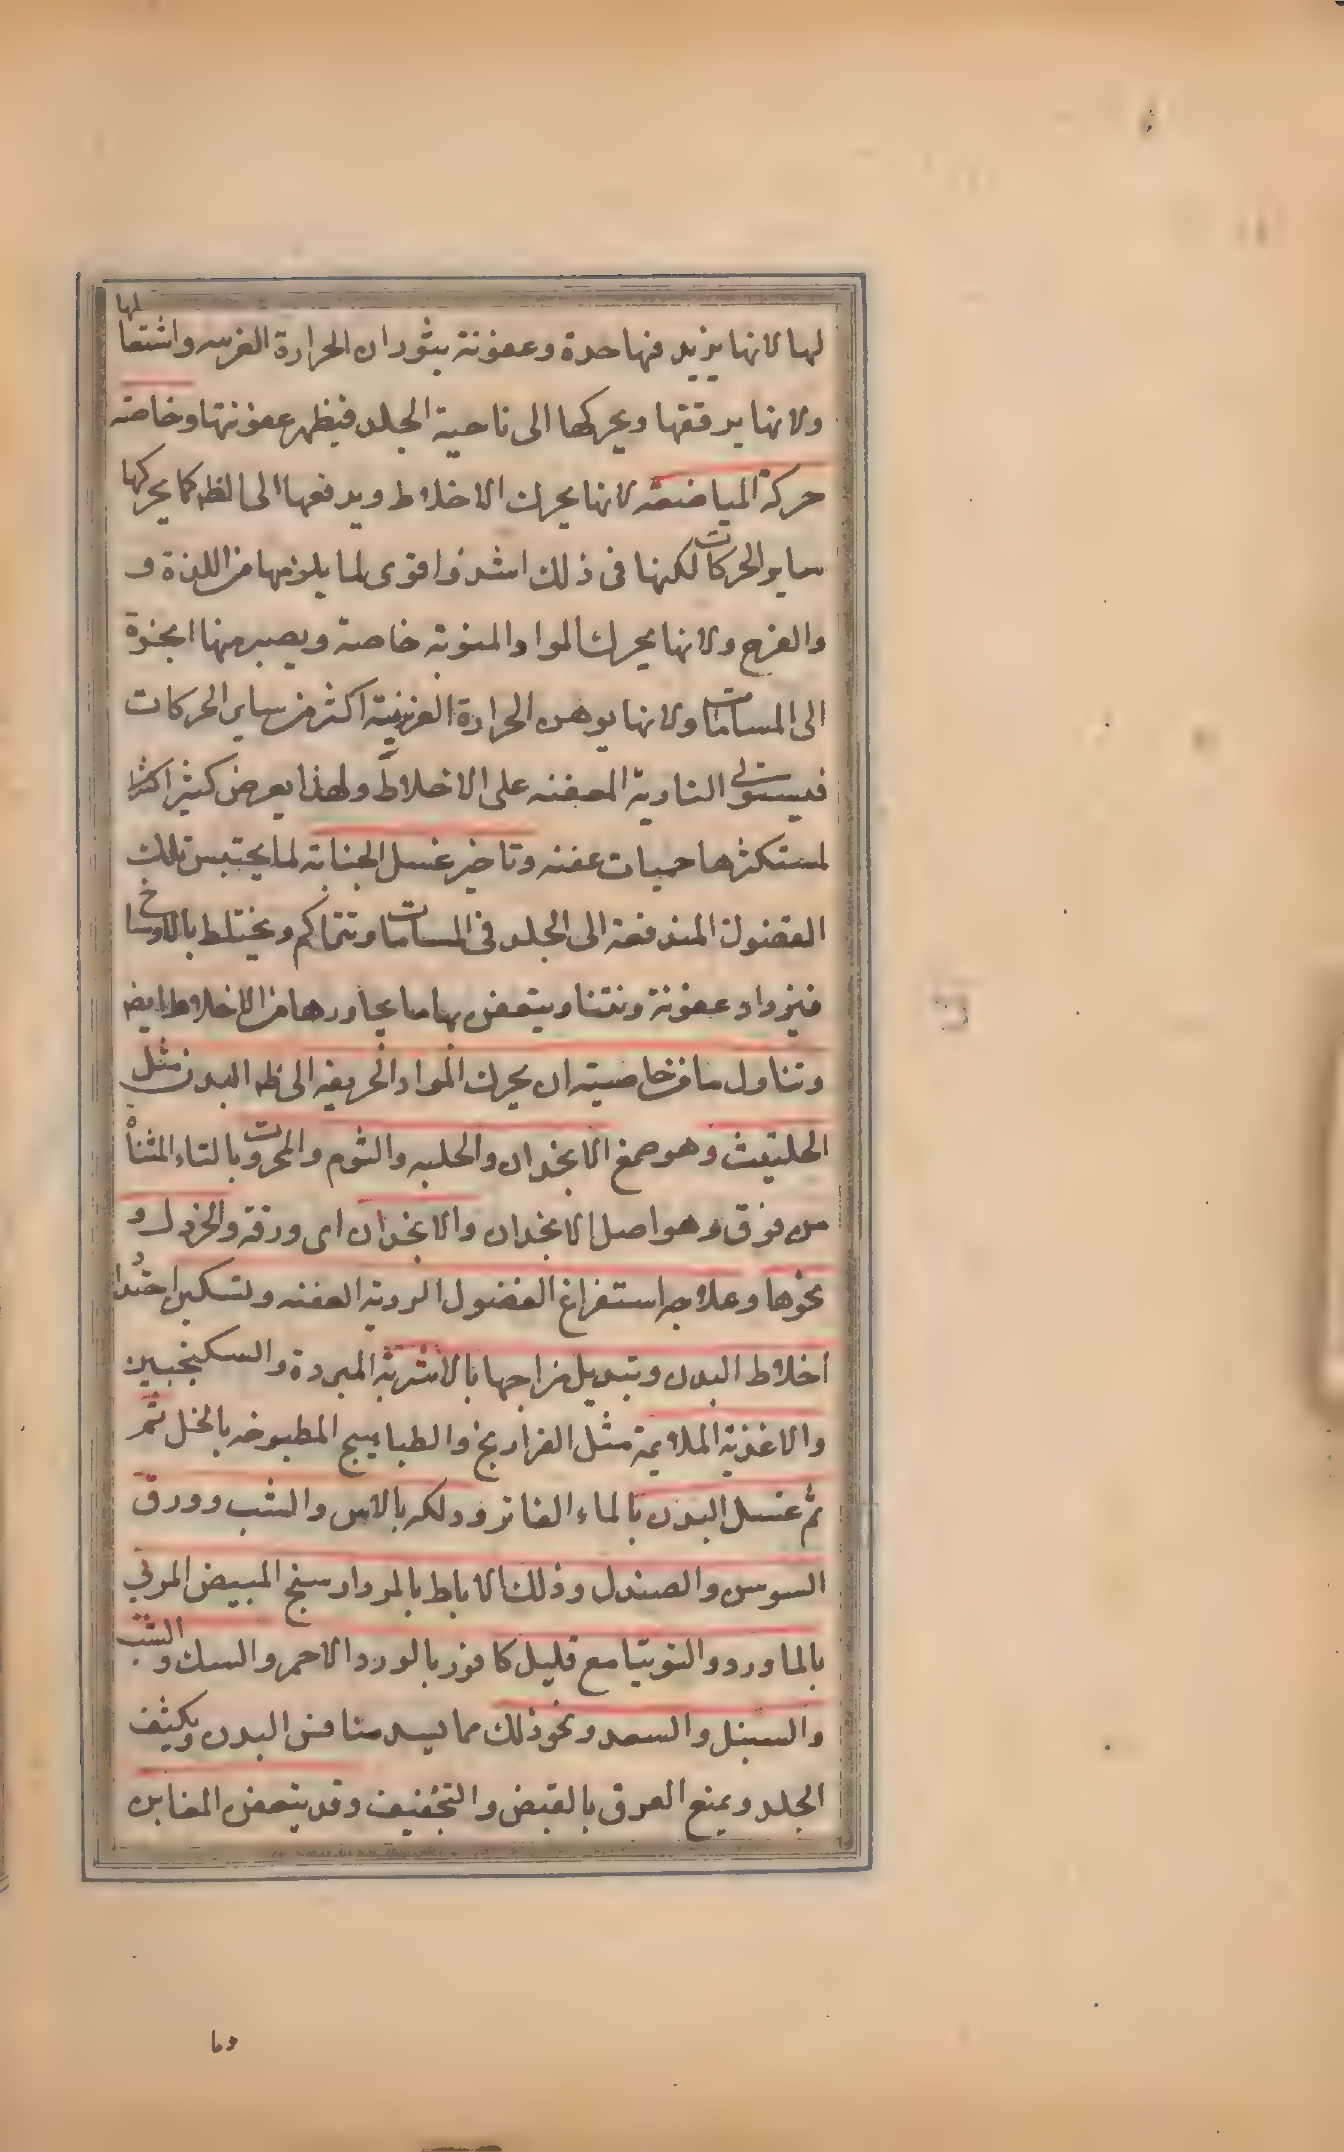 لها لانها يزيد فيها حدة وعفونة بثوران الحرارة الغريبه واشتعالها
ولانها يرققها ويحركها الى ناحية الجلد فيظهر عفونتها وخاصه
حركة المباضعة لانها يحرك الاخلاط ويدفعها الى الظه كما يحركها
ساير الحركات لكنها فى ذلك اشد واقوى لما يلزمها من اللذة و
والفرح ولانها يحرك المواد المنويه خاصة ويصير منها ابخرة
الى المسامات ولانها يوهن الحرارة الغريزية اكثر من ساير الحركات
فيستولى النارية المعفنه على الاخلاط ولهذا يعرض كثيرا كثرا
لمستكثرها حميات عفنه وتاخير غسل الجنابة لما يحتبس تلك
الفضول المندفعة الى الجلد فى المسامات وتتراكم ويختلط بالاوساخ
فيزداد عفونة ونتنا ويتعفن بها ما يجاورها من الاخلاط ايضه
وتناول ما من خاصيته ان يحرك المواد الحريفه الى ظه البدن مثل
الحلتيت وهو صمغ الانجدان والحلبه والثوم والمحروت بالتاء المثناة
من فوق وهو اصل الانجدان والانجدان اى ورقة والخردل و
نحوها وعلاجه استفراغ الفضول الردية العفنه وتسكين احتداد
اخلاط البدن وتبديل مزاجها بالاشربة المبردة والسكنجبين
والاغذية الملايمة مثل الفراريج والطباهيج المطبوخه بالخل ثم
ثم غسل البدن بالماء الفاتر ودلكه بالاس والشب وورق
السوسن والصندل وذلك الاباط بالمرداسنج المبيض المربى
بالماورد والتوتيا مع قليل كافور بالورد الاحمر والسك والشب
والسنبل والسعد ونحو ذلك مما يسد منافس البدن ويكثف
الجلد ويمنع العرق بالقبض والتجفيف وقد يتعفن المغابن